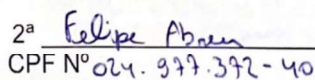 2ª Felipe Abreu
CPF Nº 024.977.372-40